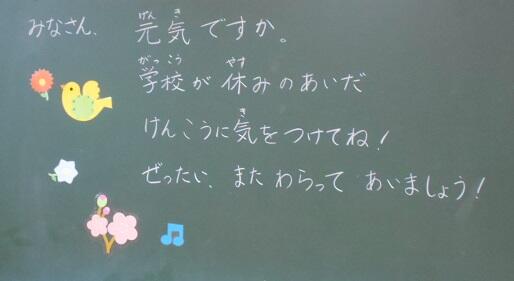 みなさん、元気ですか。
学校が休みのあいだ
けんこうに気をつけてね!
ぜったい、またわらってあいましょう!